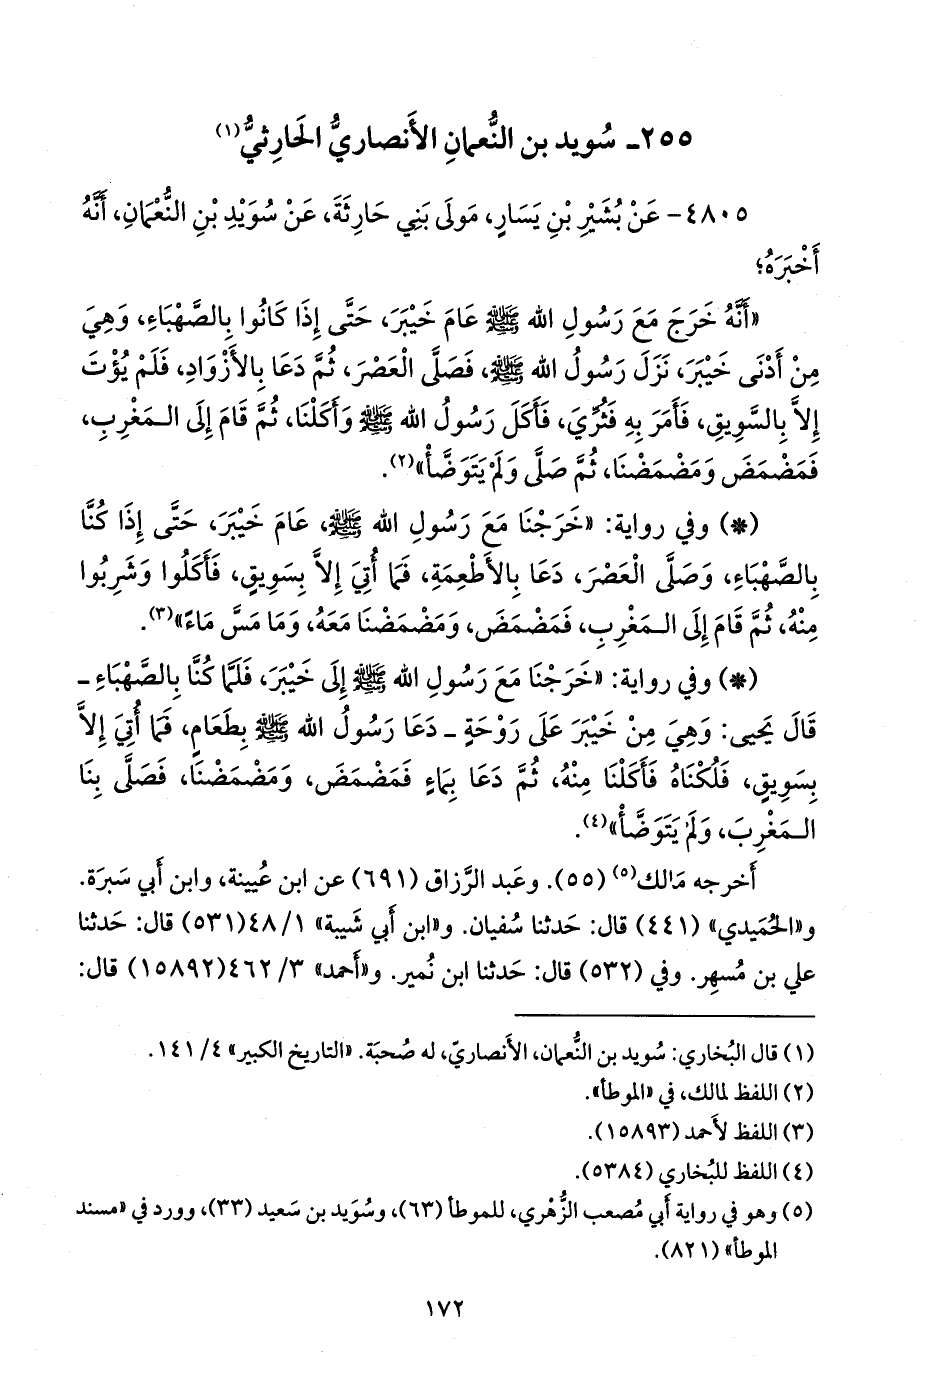 ٢٥٥ـ سُويد بن النُّعمانِ الأَنصاريُّ الحَارِثيُّ(١)
٤٨٠٥- عَنْ بُشَيْرِ بْنِ يَسَارٍ، مَولَى بَنِي حَارِثَةَ، عَنْ سُوَيْدِ بْنِ النُّعْمَانِ، أَنَّهُ
أَخْبَرَهُ؛
«أَنَّهُ خَرَجَ مَعَ رَسُولِ الله ﷺ عَامَ خَيْبَرَ، حَتَّى إِذَا كَانُوا بِالصَّهْبَاءِ، وَهِيَ
مِنْ أَدْنَى خَيْبَرَ، نَزَلَ رَسُولُ الله ﷺ، فَصَلَّى الْعَصْرَ، ثُمَّ دَعَا بِالأَزْوَادِ، فَلَمْ يُؤْتَ
إِلاَّ بِالسَّوِيقِ، فَأَمَرَ بِهِ فَثُرِّيَ، فَأَكَلَ رَسُولُ الله ﷺ وَأَكَلْنَا، ثُمَّ قَامَ إِلَى الـمَغْرِبِ،
فَمَضْمَضَ وَمَضْمَضْنَا، ثُمَّ صَلَّى وَلَمْ يَتَوَضَّأْ»(٢).
(*) وفي رواية: «خَرَجْنَا مَعَ رَسُولِ الله ﷺ، عَامَ خَيْبَرَ، حَتَّى إِذَا كُنَّا
بِالصَّهْبَاءِ، وَصَلَّى الْعَصْرَ، دَعَا بِالأَطْعِمَةِ، فَمَا أُتِيَ إِلاَّ بِسَوِيقٍ، فَأَكَلُوا وَشَرِبُوا
مِنْهُ، ثُمَّ قَامَ إِلَى الـمَغْرِبِ، فَمَضْمَضَ، وَمَضْمَضْنَا مَعَهُ، وَمَا مَسَّ مَاءً»(٣).
(*) وفي رواية: «خَرَجْنَا مَعَ رَسُولِ الله ﷺ إِلَى خَيْبَرَ، فَلَمَّا كُنَّا بِالصَّهْبَاءِ ـ
قَالَ يَحيى: وَهِيَ مِنْ خَيْبَرَ عَلَى رَوْحَةٍ ـ دَعَا رَسُولُ الله ﷺ بِطَعَامٍ، فَمَا أُتِيَ إِلاَّ
بِسَوِيقٍ، فَلُكْنَاهُ فَأَكَلْنَا مِنْهُ، ثُمَّ دَعَا بِمَاءٍ فَمَضْمَضَ، وَمَضْمَضْنَا، فَصَلَّى بِنَا
الـمَغْرِبَ، وَلَمْ يَتَوَضَّأْ»(٤).
أَخرجه مَالك(٥) (٥٥). وعَبد الرَّزاق (٦٩١) عن ابن عُيينة، وابن أَبي سَبرَة.
و«الحُمَيدي» (٤٤١) قال: حَدثنا سُفيان. و«ابن أَبي شَيبة» ١/ ٤٨(٥٣١) قال: حَدثنا
علي بن مُسهِر. وفي (٥٣٢) قال: حَدثنا ابن نُمير. و«أَحمد» ٣/ ٤٦٢(١٥٨٩٢) قال:
(١) قال البُخاري: سُويد بن النُّعمان، الأَنصاريّ، له صُحبَة. «التاريخ الكبير» ٤/ ١٤١.
(٢) اللفظ لمالك، في «الموطأ».
(٣) اللفظ لأَحمد (١٥٨٩٣).
(٤) اللفظ للبُخاري (٥٣٨٤).
(٥) وهو في رواية أَبي مُصعب الزُّهري، للموطأ (٦٣)، وسُوَيد بن سَعيد (٣٣)، وورد في «مسند
الموطأ» (٨٢١).
١٧٢